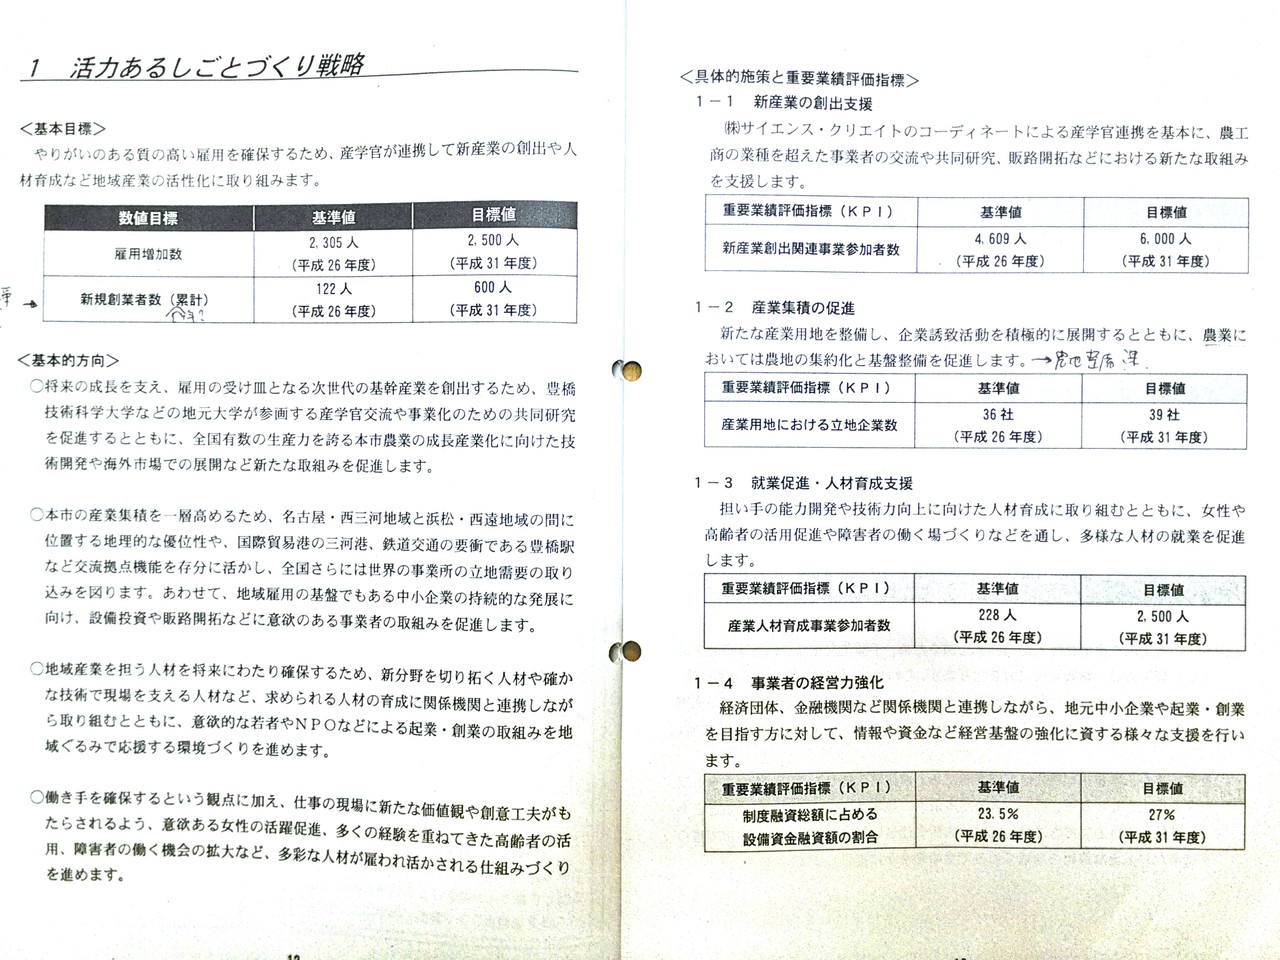 1 活力あるしごとづくり戦略
＜基本目標＞
やりがいのある質の高い雇用を確保するため、産学官が連携して新産業の創出や人
材育成など地域産業の活性化に取り組みます。
数値目標 基準値 目標値
雇用増加数 2,305人 2,500人
(平成26年度) (平成31年度)
新規創業者数（累計） 122人 600人
(平成26年度) (平成31年度)
＜基本的方向＞
○将来の成長を支え、雇用の受け皿となる次世代の基幹産業を創出するため、豊橋
技術科学大学などの地元大学が参画する産学官交流や事業化のための共同研究
を促進するとともに、全国有数の生産力を誇る本市農業の成長産業化に向けた技
術開発や海外市場での展開など新たな取組みを促進します。
○本市の産業集積を一層高めるため、名古屋・西三河地域と浜松・西遠地域の間に
位置する地理的な優位性や、国際貿易港の三河港、鉄道交通の要衝である豊橋駅
など交流拠点機能を存分に活かし、全国さらには世界の事業所の立地需要の取り
込みを図ります。あわせて、地域雇用の基盤でもある中小企業の持続的な発展に
向け、設備投資や販路開拓などに意欲のある事業者の取組みを促進します。
○地域産業を担う人材を将来にわたり確保するため、新分野を切り拓く人材や確か
な技術で現場を支える人材など、求められる人材の育成に関係機関と連携しなが
ら取り組むとともに、意欲的な若者やＮＰＯなどによる起業・創業の取組みを地
域ぐるみで応援する環境づくりを進めます。
○働き手を確保するという観点に加え、仕事の現場に新たな価値観や創意工夫がも
たらされるよう、意欲ある女性の活躍促進、多くの経験を重ねてきた高齢者の活
用、障害者の働く機会の拡大など、多彩な人材が雇われ活かされる仕組みづくり
を進めます。
＜具体的施策と重要業績評価指標＞
１－１ 新産業の創出支援
㈱サイエンス・クリエイトのコーディネートによる産学官連携を基本に、農工
商の業種を超えた事業者の交流や共同研究、販路開拓などにおける新たな取組み
を支援します。
重要業績評価指標（ＫＰＩ） 基準値 目標値
新産業創出関連事業参加者数 4,609人 6,000人
(平成26年度) (平成31年度)
１－２ 産業集積の促進
新たな産業用地を整備し、企業誘致活動を積極的に展開するとともに、農業に
おいては農地の集約化と基盤整備を促進します。
重要業績評価指標（ＫＰＩ） 基準値 目標値
産業用地における立地企業数 36社 39社
(平成26年度) (平成31年度)
１－３ 就業促進・人材育成支援
担い手の能力開発や技術力向上に向けた人材育成に取り組むとともに、女性や
高齢者の活用促進や障害者の働く場づくりなどを通し、多様な人材の就業を促進
します。
重要業績評価指標（ＫＰＩ） 基準値 目標値
産業人材育成事業参加者数 228人 2,500人
(平成26年度) (平成31年度)
１－４ 事業者の経営力強化
経済団体、金融機関など関係機関と連携しながら、地元中小企業や起業・創業
を目指す方に対して、情報や資金など経営基盤の強化に資する様々な支援を行い
ます。
重要業績評価指標（ＫＰＩ） 基準値 目標値
制度融資総額に占める 23.5% 27%
設備資金融資額の割合 (平成26年度) (平成31年度)